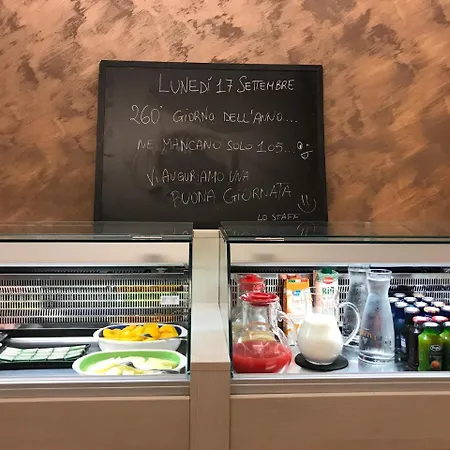 LUNEDÍ 17 SETTEMBRE
260° GIORNO DELL'ANNO...
NE MANCANO SOLO 105...
VI AUGURIAMO UNA
BUONA GIORNATA
LO STAFF